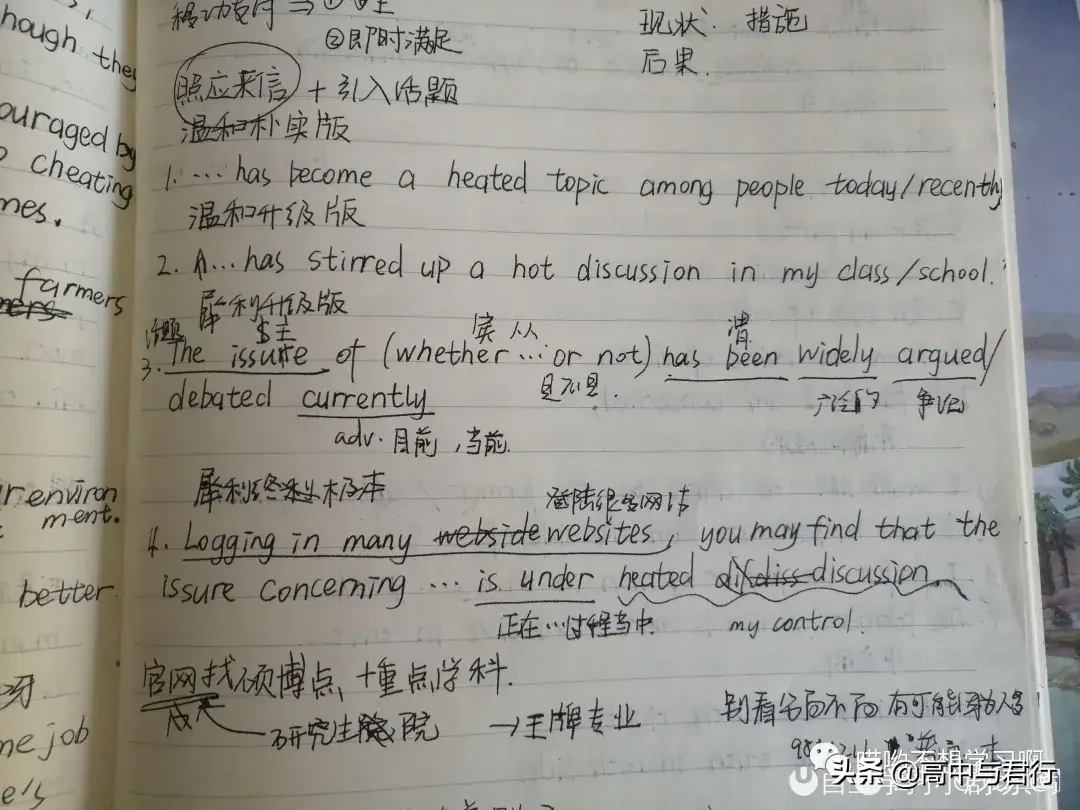 hough they
ouraged by
cheating
mes.
farmers
r environ
ment.
better
牙
me job
e's
移动支付 ⇒ ①
②即时满足
现状: 措施
后果.
照应来信 + 引入话题
温和朴实版
1. ... has become a heated topic among people today/recently
温和升级版
2. A... has stirred up a hot discussion in my class/school.
犀利升级版
话题
3. The issure of (whether ... or not) has been widely argued/
是不是.
debated currently
争论
adv. 目前, 当前.
犀利终极版本
登陆很多网站
4. Logging in many webside websites, you may find that the
issure concerning ... is under heated discussion
正在...过程当中.
my control.
官网找硕博点、+重点学科.
研究生院 → 王牌专业
别看名字不
头条 @高中与君行
哎哟不想学习啊